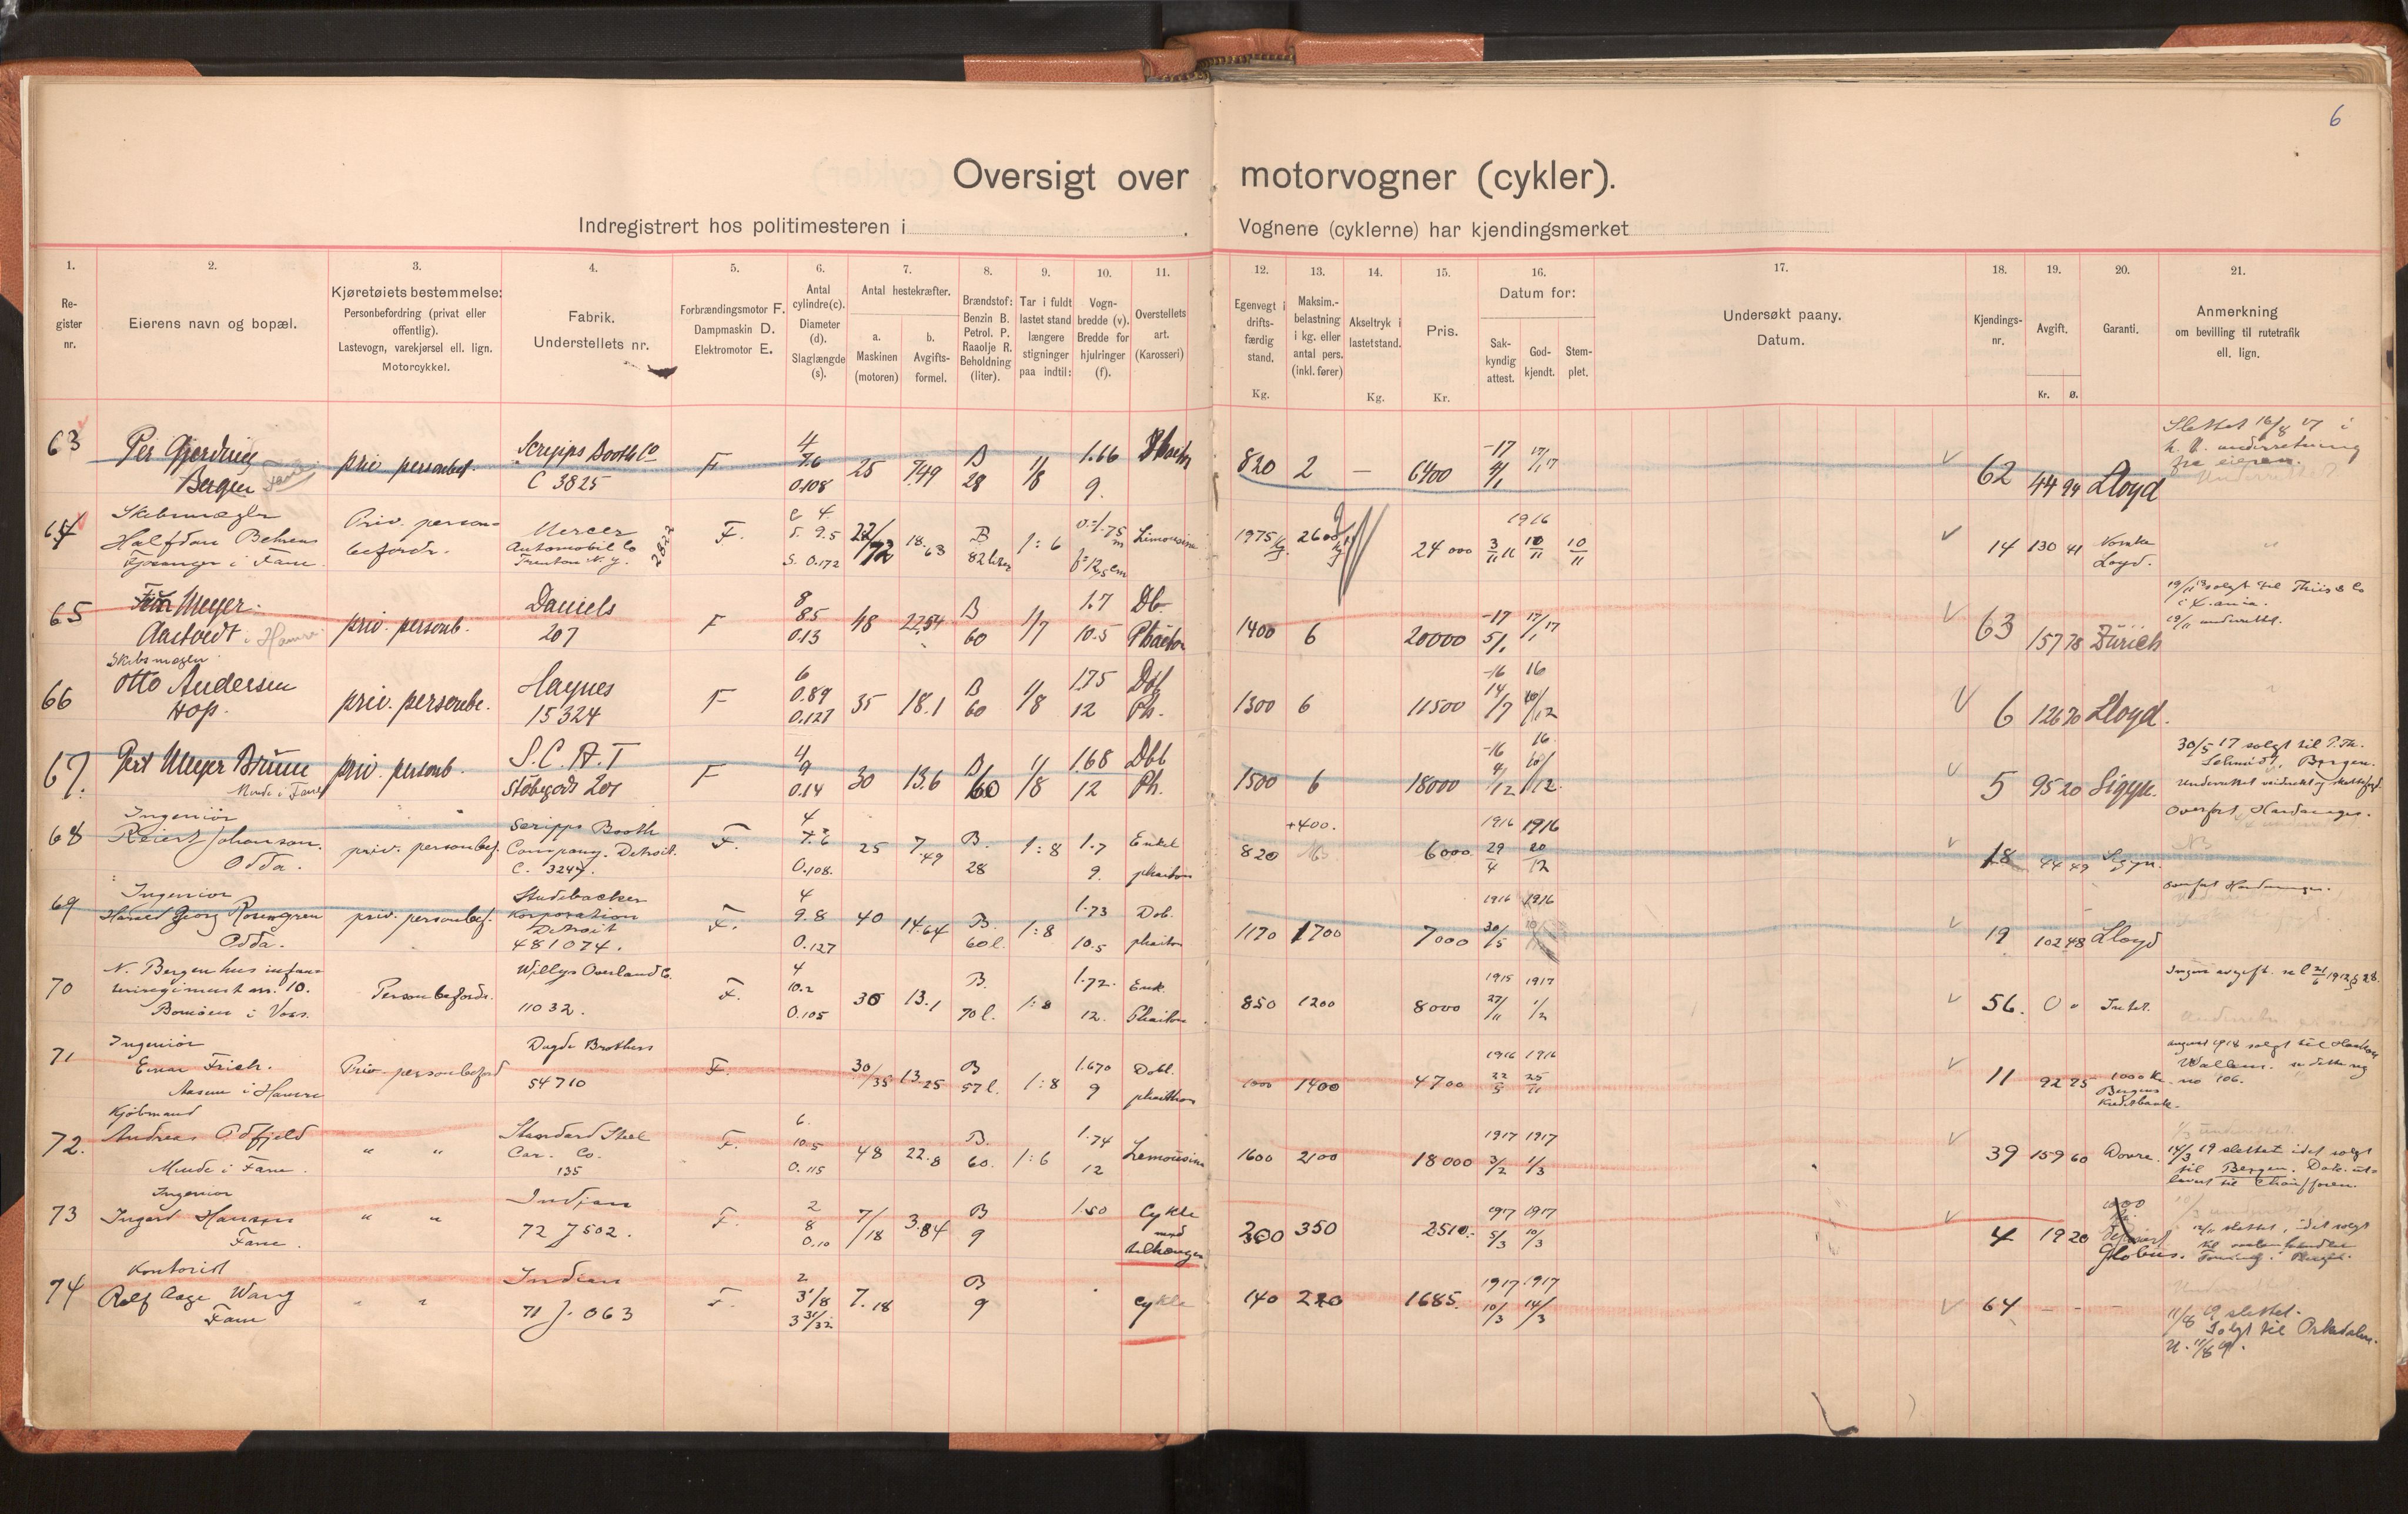 6
Oversigt over motorvogner (cykler).
Indregistrert hos politimesteren i . Vognene (cyklerne) har kjendingsmerket
1. Register nr.
2. Eierens navn og bopæl.
3. Kjøretøiets bestemmelse: Personbefordring (privat eller offentlig). Lastevogn, varekjørsel ell. lign. Motorcykkel.
4. Fabrik. Understellets nr.
5. Forbrændingsmotor F. Dampmaskin D. Elektromotor E.
6. Antal cylindre(c). Diameter (d). Slaglængde (s).
7. Antal hestekræfter. a. Maskinen (motoren) b. Avgiftsformel.
8. Brændstof: Benzin B. Petrol. P. Raaolje R. Beholdning (liter).
9. Tar i fuldt lastet stand længere stigninger paa indtil:
10. Vognbredde (v). Bredde for hjulringer (f).
11. Overstellets art. (Karosseri)
12. Egenvegt i driftsfærdig stand. Kg.
13. Maksim.-belastning i kg. eller antal pers. (inkl. fører)
14. Akseltryk i lastetstand. Kg.
15. Pris. Kr.
16. Datum for: Sakkyndig attest. Godkjendt. Stemplet.
17. Undersøkt paany. Datum.
18. Kjendingsnr.
19. Avgift. Kr. Ø.
20. Garanti.
21. Anmerkning om bevilling til rutetrafik ell. lign.
63 Per Gjerding Bergen priv personbef. Scripps Booth Co C 3825 F 4 7.6 0.108 25 7.49 B 28 1/8 1.66 9. Phaeton 820 2 — 6400 -17 4/1 17/1 17 62 44 94 Lloyd Slettet 16/8 17 i h. t. underretning fra eieren.
64 Skibsmægler Halfdan Behrens Fjøsanger i Fane Priv. personbefordr. Mercer Automobil Co Trenton N. Y. 2822 F. c 4 d. 9.5 S. 0.172 22/72 18.63 B 82 liter 1:6 v. 1.75 m f = 12,5 cm Limousine 1975 kg. 2600 kg 24 000 1916 3/11 16 10/11 10/11 14 130 41 Norske Loyd. "
65 Meyer. Aastvedt i Hamre priv. personb. Daniels 207 F 8 85 0.13 48 22,54 B 60 1/7 1.7 10.5 Db. Phaeton 1400 6 20000 -17 5/1 17/1 17 63 157 78 Zürich 19/11 18 solgt til Thiis & Co i X.ania. 19/11 underrettet.
66 Skibsmægler Otto Andersen Hop. priv. personbe. Haynes 15324 F 6 0.89 0.127 35 18.1 B 60 1/8 1.75 12 Dbl Ph. 1300 6 11500 -16 14/7 16 20/12 6 126 70 Lloyd. "
67. Gert Meyer Bruun Minde i Fane priv. personb. S. C. A. T Støbegods 201 F 4 9 0.14 30 13.6 B 60 1/8 1.68 12 Dbl Ph. 1500 6 18000 -16 4/12 16. 10/12. 5 95 20 Sigyn. 30/5 17 solgt til P. Th. Schmidt, Bergen.
68 Ingeniør Reiert Johanson. Odda. priv. personbef. Scripps Booth Company. Detroit. C. 3247. F. 4 7.6 0.108. 25 7.49 B. 28 1:8 1.7 9. Enkel phaeton 820 +400. 6000. 1916 29/4 1916 20/12 18 44 49 Sigyn. Overført Hardanger. NB
69 Ingeniør Harald Georg Rosengren Odda. priv. personbef. Studebacker Korporation Detroit 481074. F. 4 9.8 0.127 40 14.64 B. 60 l. 1:8 1.73 10.5 Dob. phaiton 1170 1700 7000 1916 30/5 1916 19 102 48 Lloyd Overført Hardanger.
70 N. Bergenhus infanteriregiment nr. 10. Bømoen i Voss. Personbefordr. Willys Overland Co. 11032. F. 4 10.2 0.105 30 13.1 B. 70 l. 1:8 1.72. 12. Enk. Phaiton 850 1200 8000 1915 27/11 1917 1/2 56. 0 " Intet. Ingen avgift. se l 21/6 1912 § 28.
71 Ingeniør Einar Frich. Aasene i Hamre Priv. personbeford Dogde Brothers 54710 F. 30/35 13.25 B 57 l. 1:8 1.670 9 Dobl. phaithon 1000 1400 4700 1916 22/5 1916 25/11 11 92 75 1000 Kr. Bergens Kreditbank. august 1918 solgt til Haakon Wallem. se dette reg no 106.
72. Kjøbmand Andreas Odfjeld Minde i Fane. " " Standard Steel Car. Co. 135 F. 6. 10.5 0.115 48 22.8 B. 60. 1:6 1.74 12 Lemousine 1600 2100 18000 1917 3/2 1917 1/3 39 159 60 Dovre. 14/3 19 slettet idet solgt til Bergen. Dok. utlevert til Chaufføren.
73 Ingeniør Ingard Hansen Fane. " " Indian 72 J 502. F. 2 8 0.10 7/18 3.84 B 9 1.50 Cykle med tilhenger 300 350 2510.- 1917 5/3 1917 10/3 4 19 20 Globus. 12/11 slettet, idet solgt til
74 Kontorist Rolf Aage Wang Fane " " Indian 71 J. 063 F. 2 3 1/8 3 31/32 7.18 B 9 Cykle 140 220 1685. 1917 10/3 1917 14/3 64 — - - 11/6 19 slettet. Solgt til Orkedalen. U. 11/6 19.